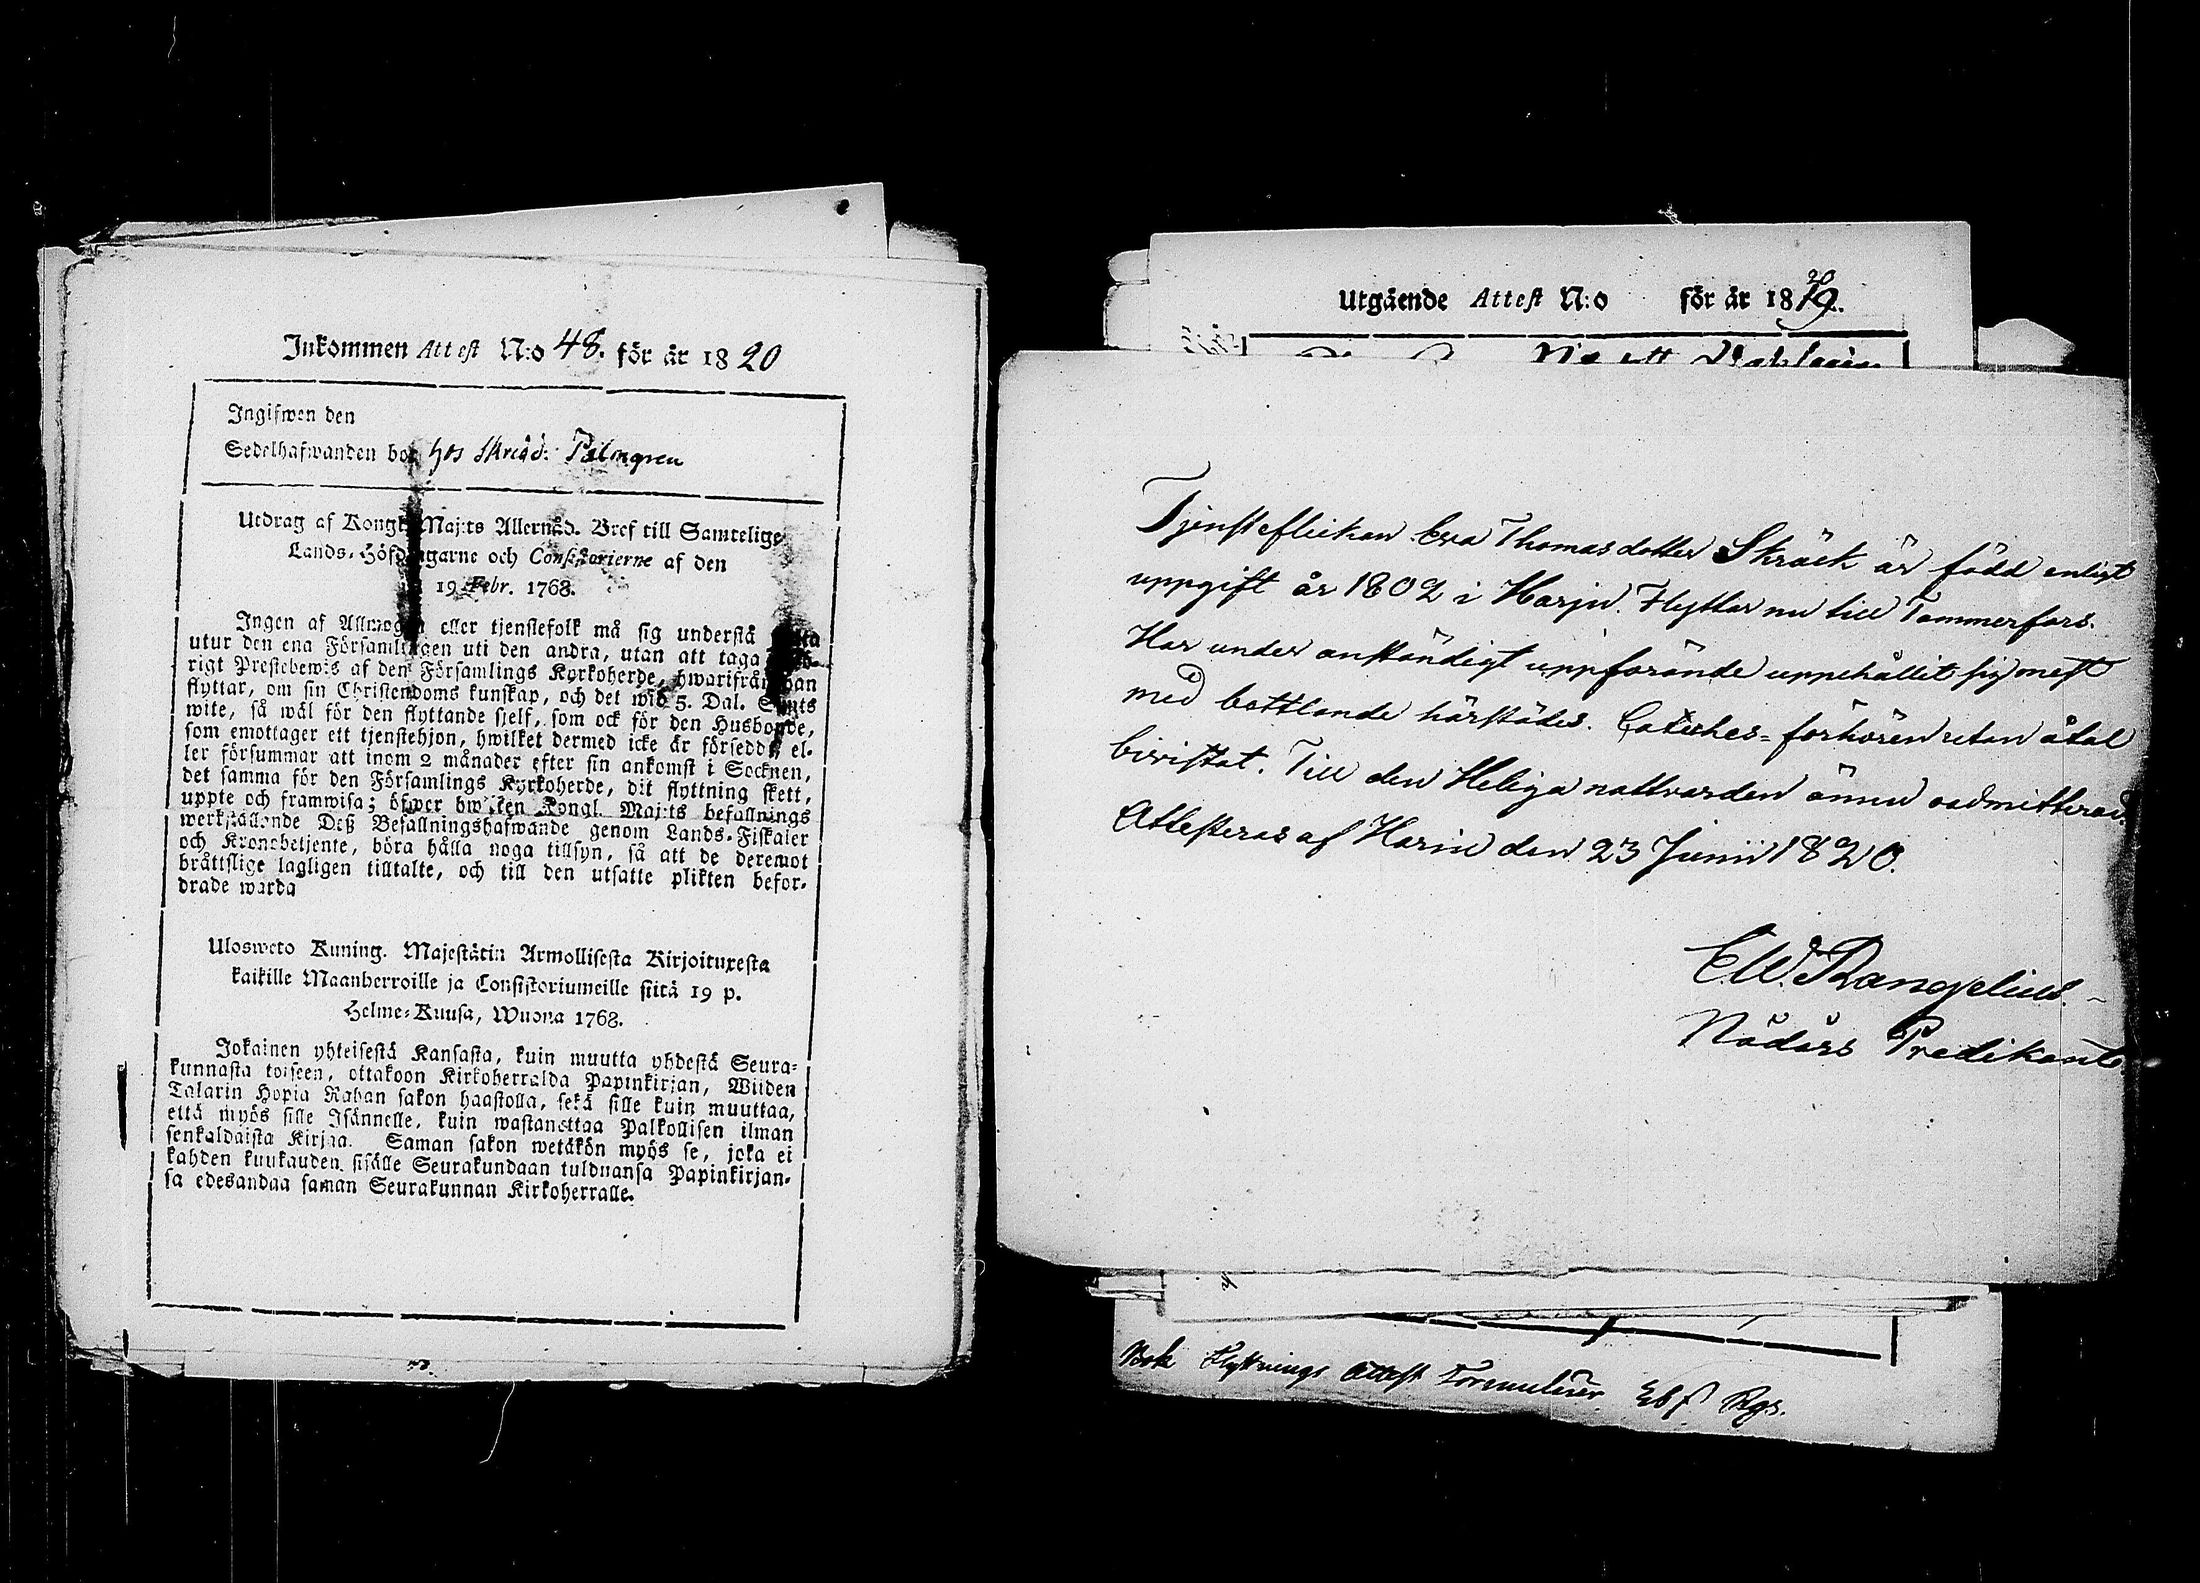 Inkommen Attest N:o 48. för år 1820
Ingifwen den
Sedelhafwanden bor hos Skrädd: Palmgren
Utdrag af Kongl. Maj:ts Allernåd. Bref till Samtelige
Lands-Höfdingarne och Consistorierne af den
19 Febr. 1768.
Ingen af Allmogen eller tjenstefolk må sig understå
utur den ena Församlingen uti den andra, utan att taga
rigt Prestebewis af den Församlings Kyrkoherde, hwarifrån han
flyttar, om sin Christendoms kunskap, och det wid 5. Dal. S:mts
wite, så wäl för den flyttande sjelf, som ock för den Husbonde,
som emottager ett tjenstehjon, hwilket dermed icke är försedd, el-
ler försummar att inom 2 månader efter sin ankomst i Socknen,
det samma för den Församlings Kyrkoherde, dit flyttning skett,
uppte och framwisa; öfwer hwilken Kongl. Maj:ts befallnings
werkställande Deß Befallningshafwande genom Lands-Fiskaler
och Kronobetjente, böra hålla noga tillsyn, så att de deremot
bråttslige lagligen tilltalte, och till den utsatte plikten befor-
drade warda
Ulosweto Kuning. Majestätin Armollisesta Kirjoituxesta
kaikille Maanherroille ja Consistoriumeille siitä 19 p.
Helme-Kuusa, Wuona 1768.
Jokainen yhteisestä Kansasta, kuin muutta yhdestä Seura-
kunnasta toiseen, ottakoon Kirkoherralda Papinkirjan, Wiiden
Talarin Hopia Rahan sakon haastolla, sekä sille kuin muuttaa,
että myös sille Isännelle, kuin wastanottaa Palkollisen ilman
senkaldaista Kirjaa. Saman sakon wetäkön myös se, joka ei
kahden kuukauden sisälle Seurakundaan tulduansa Papinkirjan-
sa edesandaa saman Seurakunnan Kirkoherralle.
Utgående Attest N:o för år 1819. 20
Tjensteflickan Eva Thomasdotter Skräck är född enligt
uppgift år 1802 i Harju. Flyttar nu till Tammerfors.
Har under anständigt uppförande uppehållit sig mest
med bettlande härstädes. Catches=förhören utan åtal
bivistat. Till den Heliga nattvarden ännu oadmitterad.
Attesteras af Harju den 23 Junii 1820.
C.W. Rangelius.
Nådårs Predikant.
Bok Flyttnings Attest Formulärer